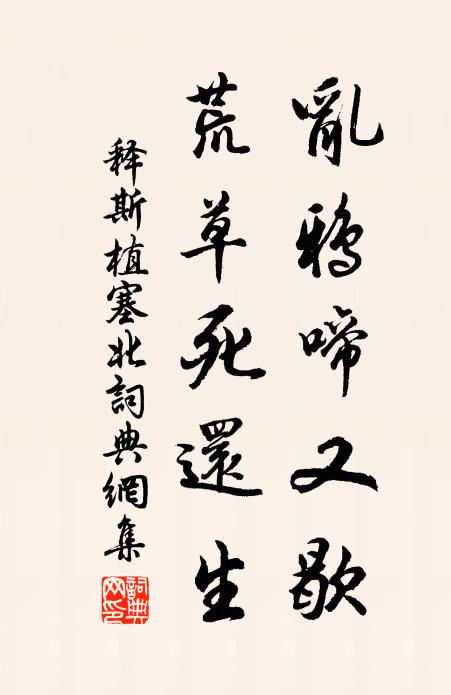 亂鴉啼又歇
荒草死還生
释斯植塞北詞典網集
詞典
网印